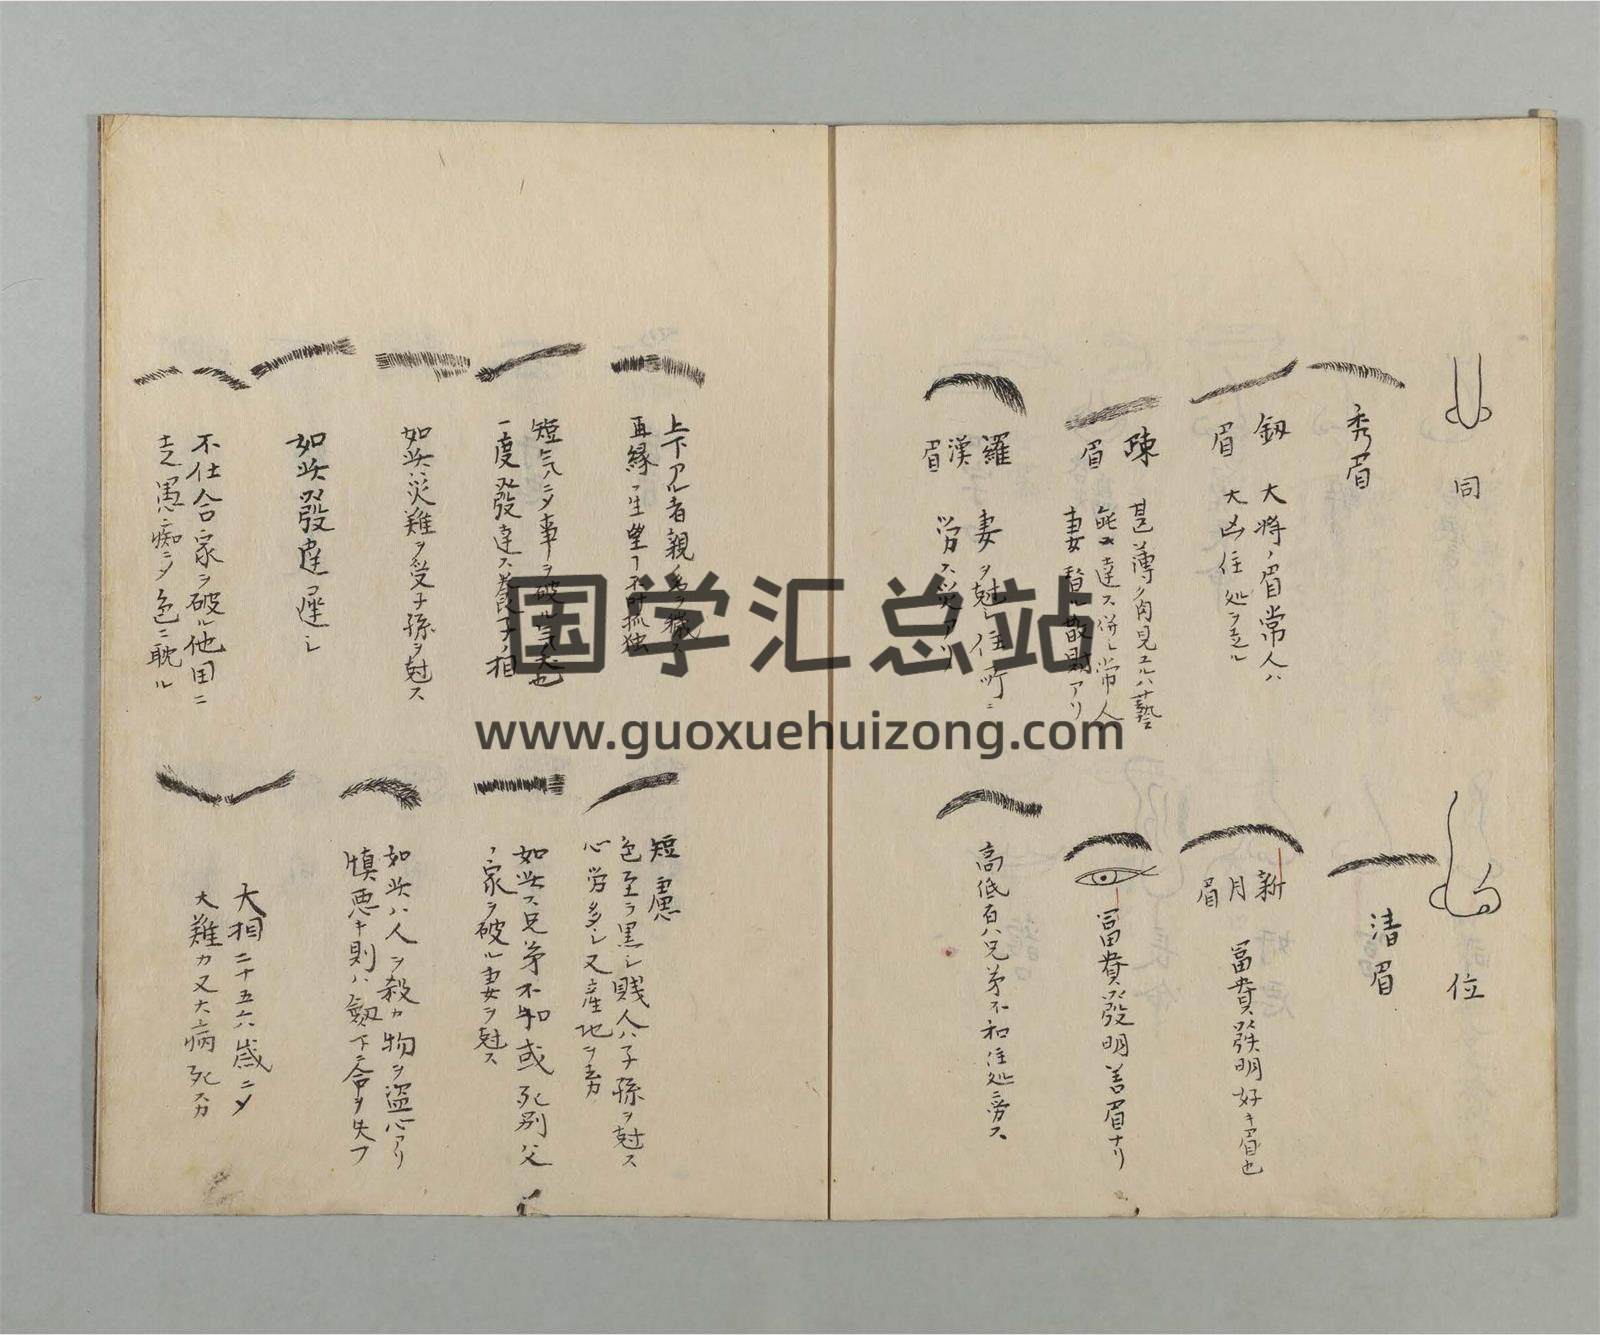 同
秀眉
釼眉
大將ノ眉常人ハ
大凶住処ヲ立ル
陳眉
甚薄ク肉見エルハ藝
能ニ達ス併シ常人
妻 散財アリ
羅漢眉
妻ヲ尅シ住所ニ
労ス災アリ
位
清眉
新月眉
冨貴發明好キ眉也
冨貴發明善眉ナリ
高低有ハ兄弟不和住処ニ労ス
上下アル者親ノ
再縁 生 望 孤独
短気ニメ事ヲ破ル
一度發達ス養子ノ相
如此災難ヲ受子孫ヲ尅ス
如此發達遅シ
不仕合家ヲ破ル他田ニ
走愚痴ニメ色ニ耽ル
短慮
色至ラ黒シ賎人ハ子孫ヲ尅ス
心労多シ又産地ヲ去カ
如此ハ兄弟不和或死別父
ノ家ヲ破ル妻ヲ尅ス
如此ハ人ヲ殺カ物ヲ盗心アリ
慎悪キ則ハ劔下ニ命ヲ失フ
大相二十五六歳ニメ
大難カ又大病死スカ
国学汇总站
www.guoxuehuizong.com